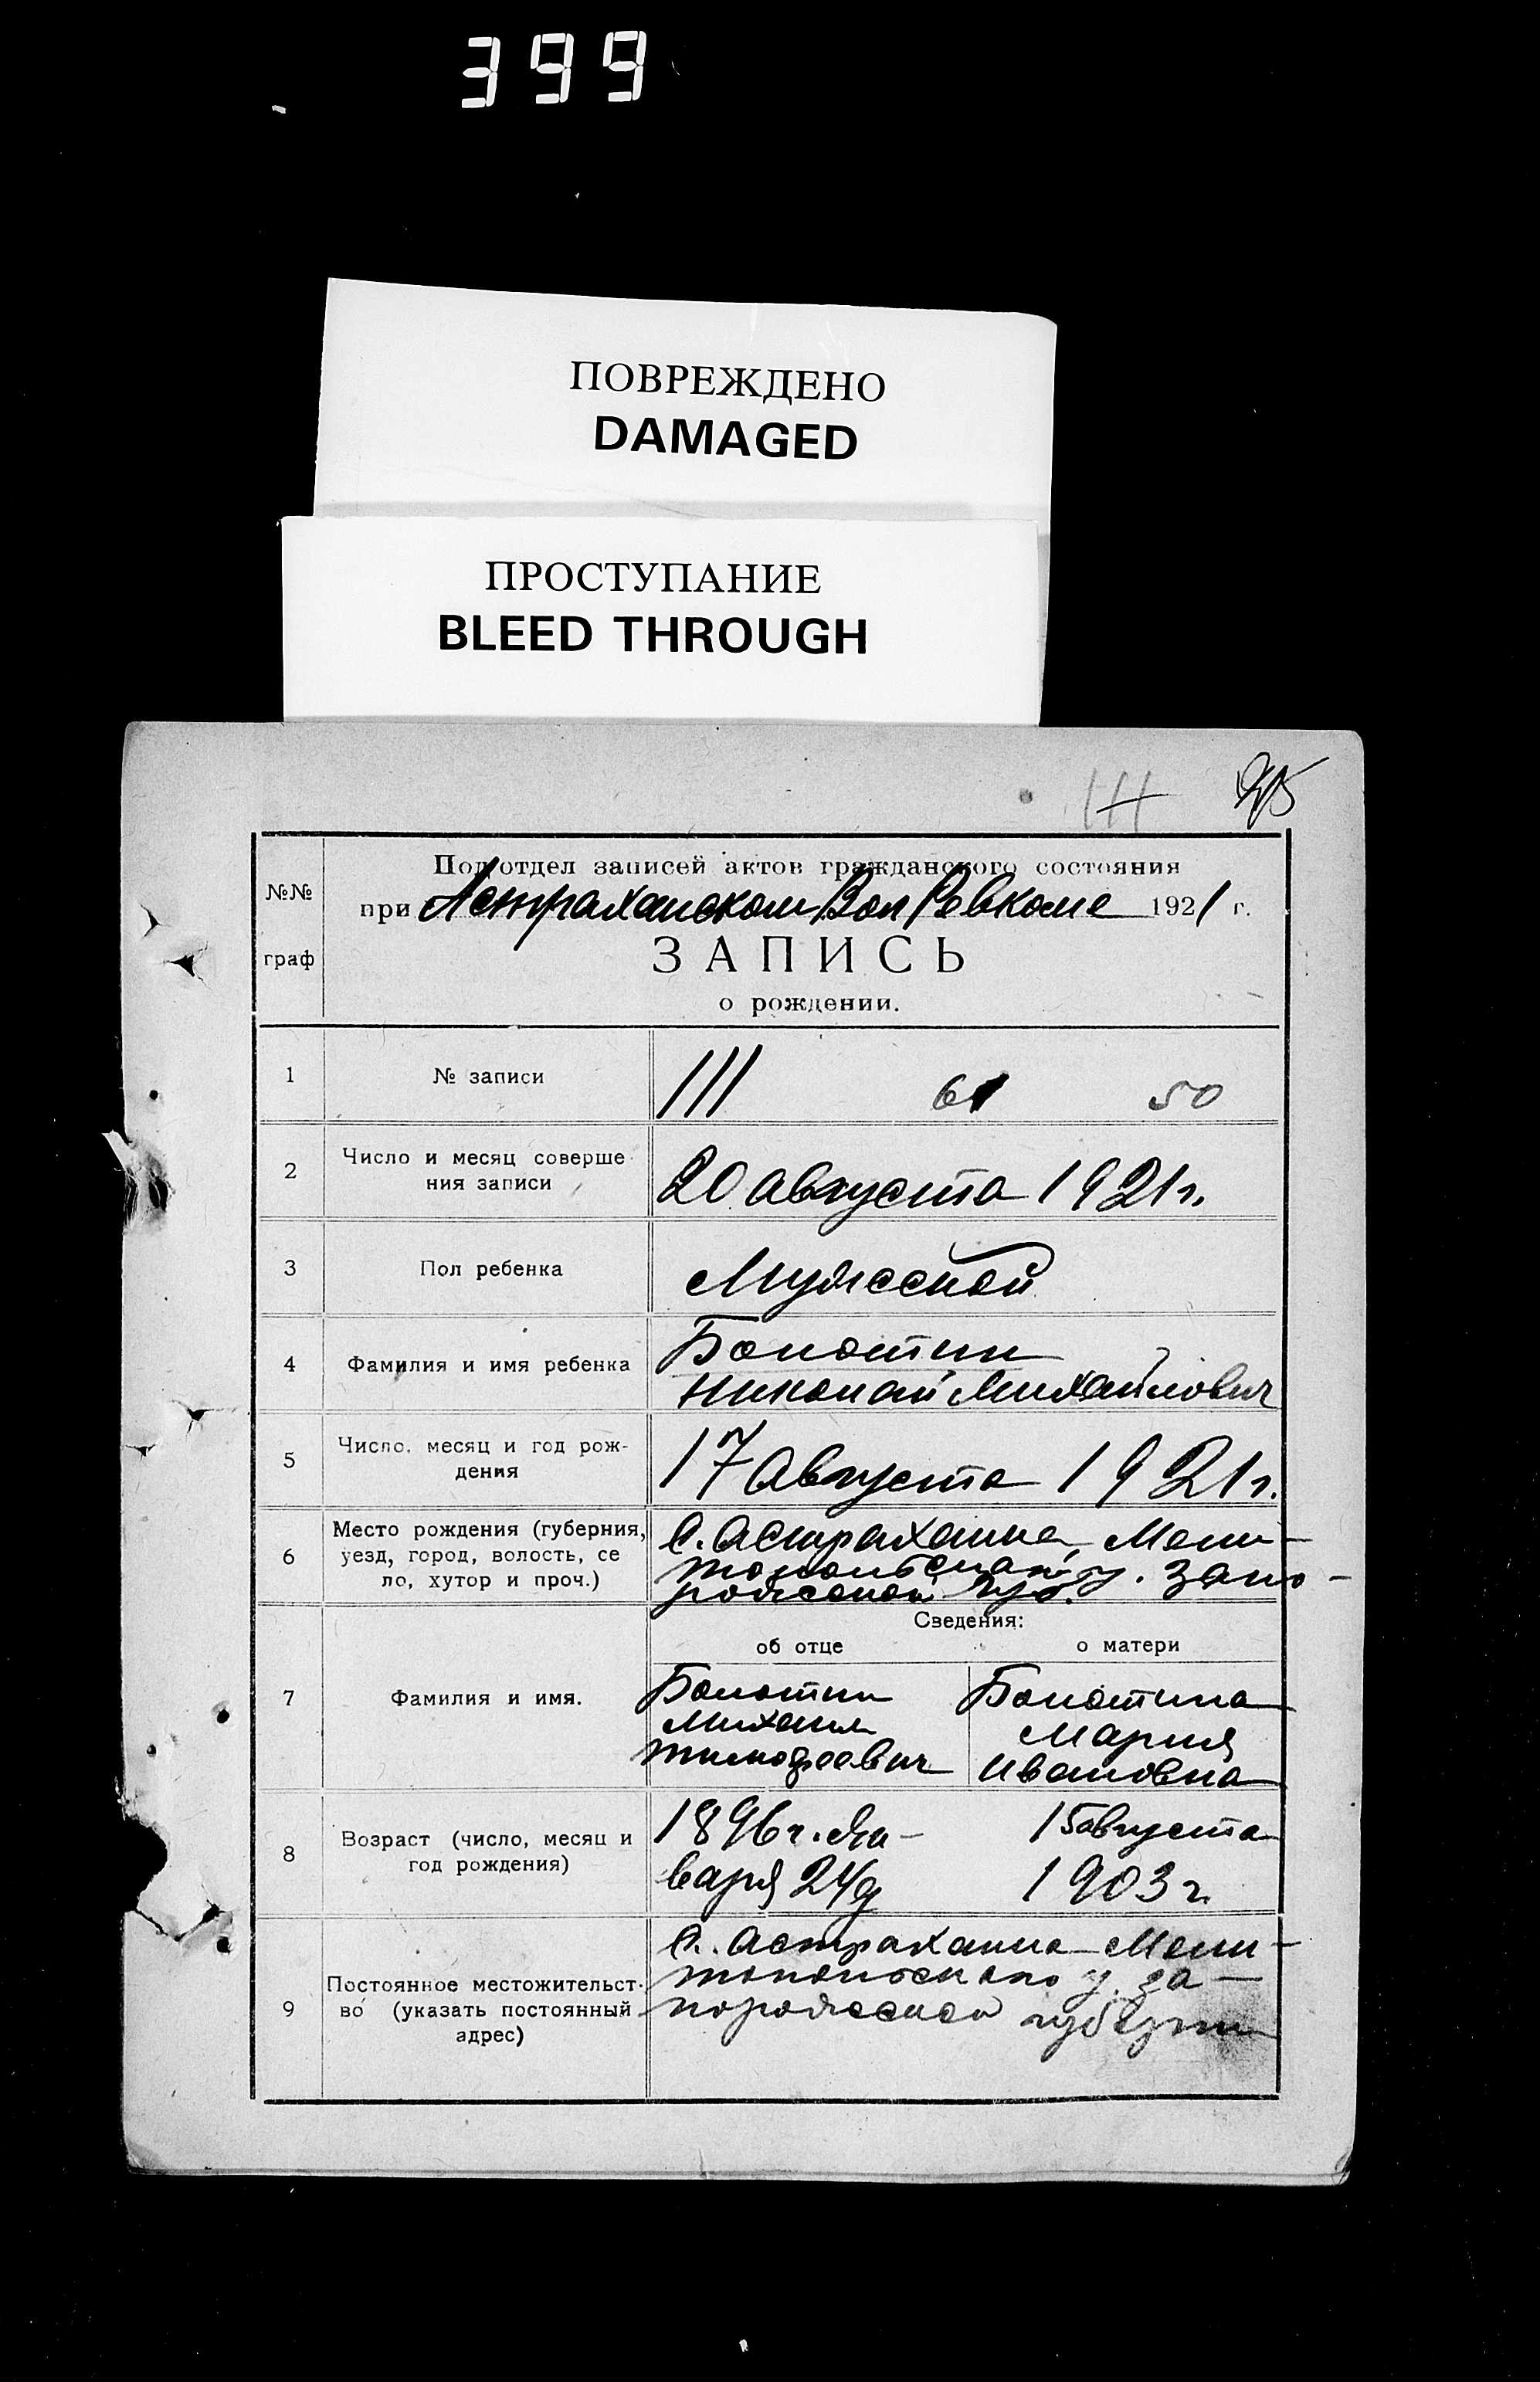 399
ПОВРЕЖДЕНО
DAMAGED
ПРОСТУПАНИЕ
BLEED THROUGH
111
№№ граф
Подотдел записей актов гражданского состояния
при Астраханском Вол Ревкоме 1921 г.
ЗАПИСЬ
о рождении.
1 № записи 111 61 50
2 Число и месяц соверше
ния записи
20 августа 1921 г.
3 Пол ребенка Мужской
4 Фамилия и имя ребенка
Болотин
Николай Михайлович
5 Число, месяц и год рож-
дения
17 августа 1921 г.
6 Место рождения (губерния,
уезд, город, волость, се
ло, хутор и проч.)
С. Астраханка, Мели-
топольского у. Запо-
рожской губ.
Сведения:
об отце о матери
7 Фамилия и имя.
Болотин
Михаил
Тимофеевич
Болотина
Мария
Ивановна
8 Возраст (число, месяц и
год рождения)
1896 г. Ян-
варя 24 д
15 августа
1903 г.
9 Постоянное местожительст-
во (указать постоянный
адрес)
С. Астраханка Мели-
топольского у. За-
порожской губернии